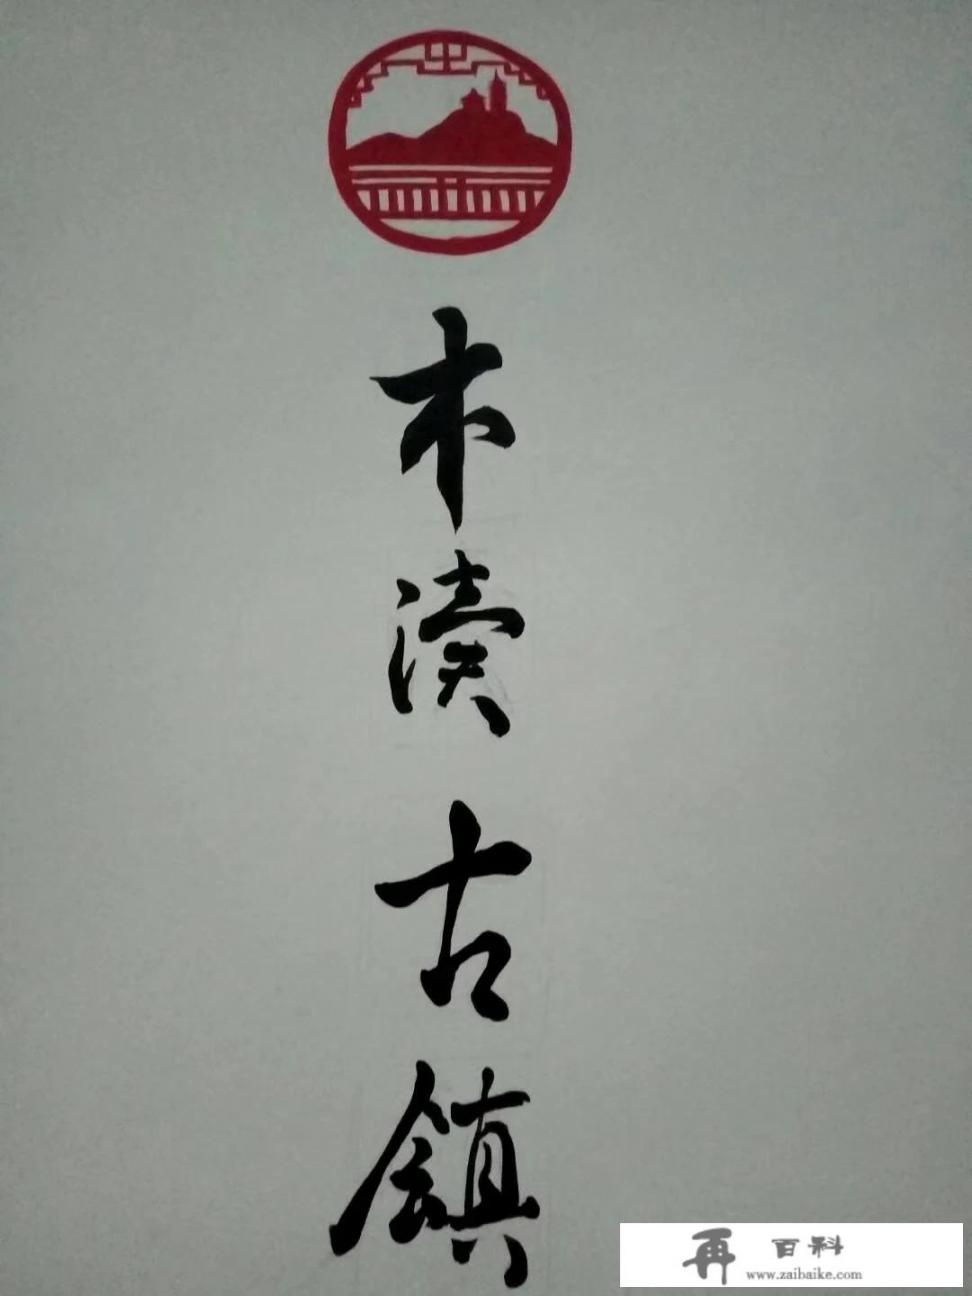 木渎古鎮
再 百科
www.zaibaike.com